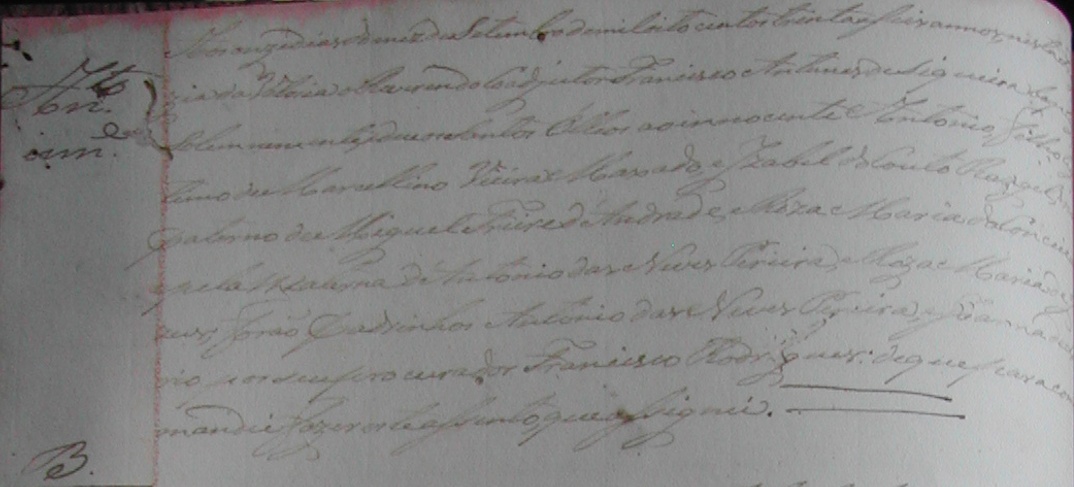 Anto.
Aos onze dias do mez de Setembro de mil oito centos trinta e seis annos, nesta
da Vitoria o Reverendo Coadjutor Francisco Antunes de Siqueira
Solemnemente, e deu os Santos Olleos ao innocente Antonio, filho
timo de Marcellino Vieira Maxado, e Izabel do Couto Rangel,
paterno de Miguel Freire de Andrade, e Roza Maria da
pela Materna de Antonio das Neves Pereira, e Roza Maria de
forão Padrinhos Antonio das Neves Pereira, e Joanna
por seu procurador Francisco Rodrigues: de que para
mandei fazer este assento, que assignei.
B.